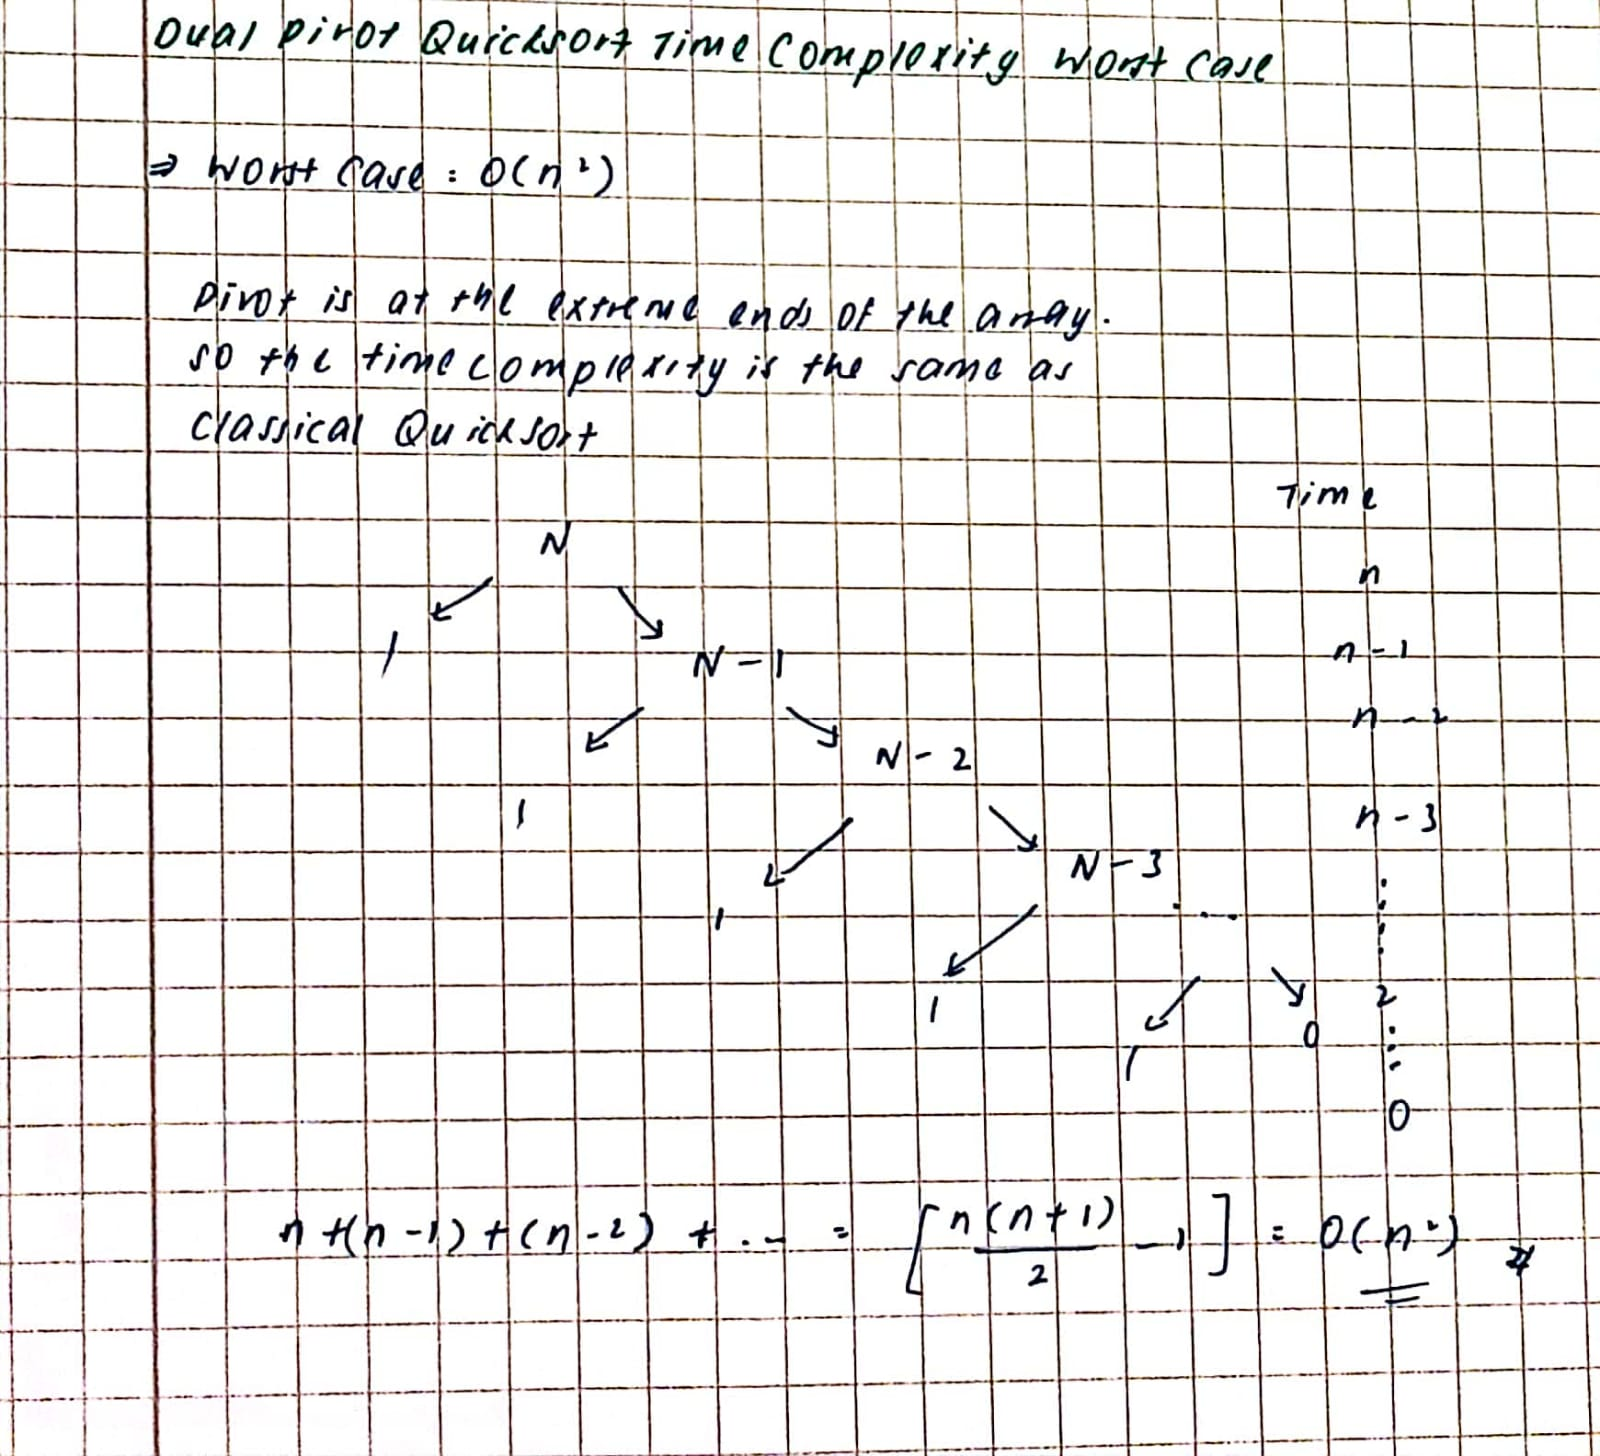 Dual Pivot Quicksort Time Complexity Worst Case
⇒ Worst Case : O(n²)
Pivot is at the extreme ends of the array.
so the time complexity is the same as
Classical Quicksort
Time
N
n
1
N-1
n-1
n-2
N-2
1
n-3
N-3
1
....
1
2
0
1
0
n+(n-1)+(n-2) + ... = [n(n+1)/2 - 1] = O(n²)